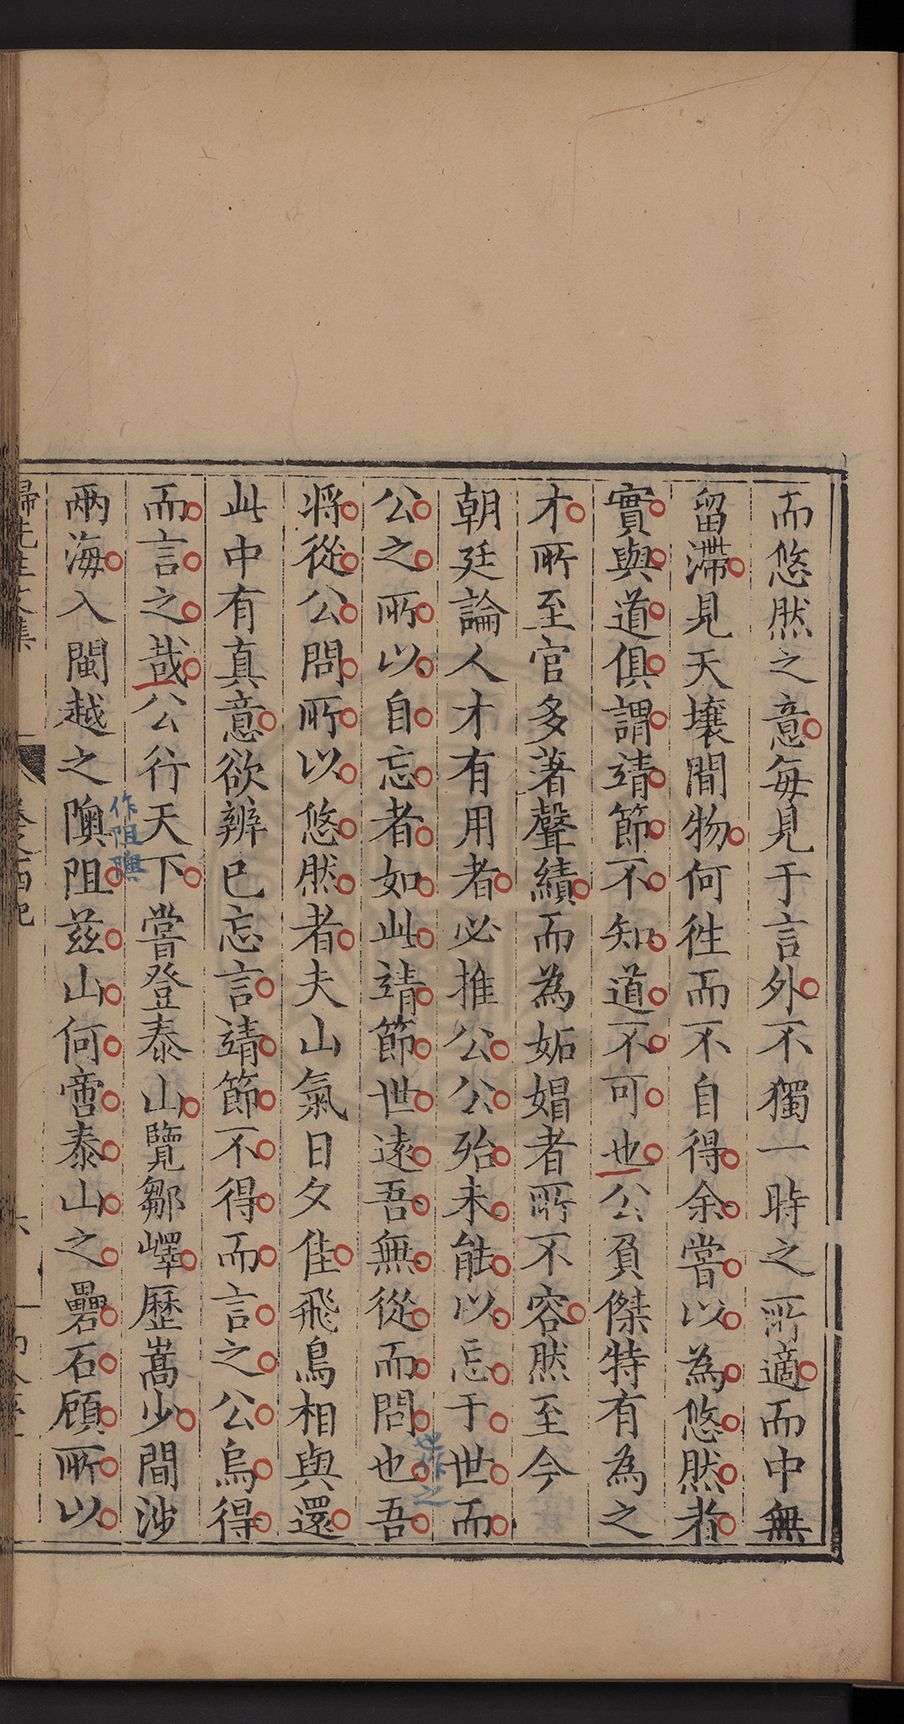 而悠然之意每見于言外不獨一時之所適而中無
留滯見天壤間物何徃而不自得余嘗以為悠然者
實與道俱謂靖節不知道不可也公負傑特有為之
才所至官多著聲績而為妬媢者所不容然至今
朝廷論人才有用者必推公公殆未能以忘于世而
公之所以自忘者如此靖節世遠吾無從而問也吾
将從公問所以悠然者夫山氣日夕佳飛鳥相與還
此中有真意欲辨已忘言靖節不得而言之公烏得
而言之哉公行天下嘗登泰山覽鄒嶧歷嵩少間涉
兩海入閩越之隩阻茲山何啻泰山之礨石顧所以
作阻隩